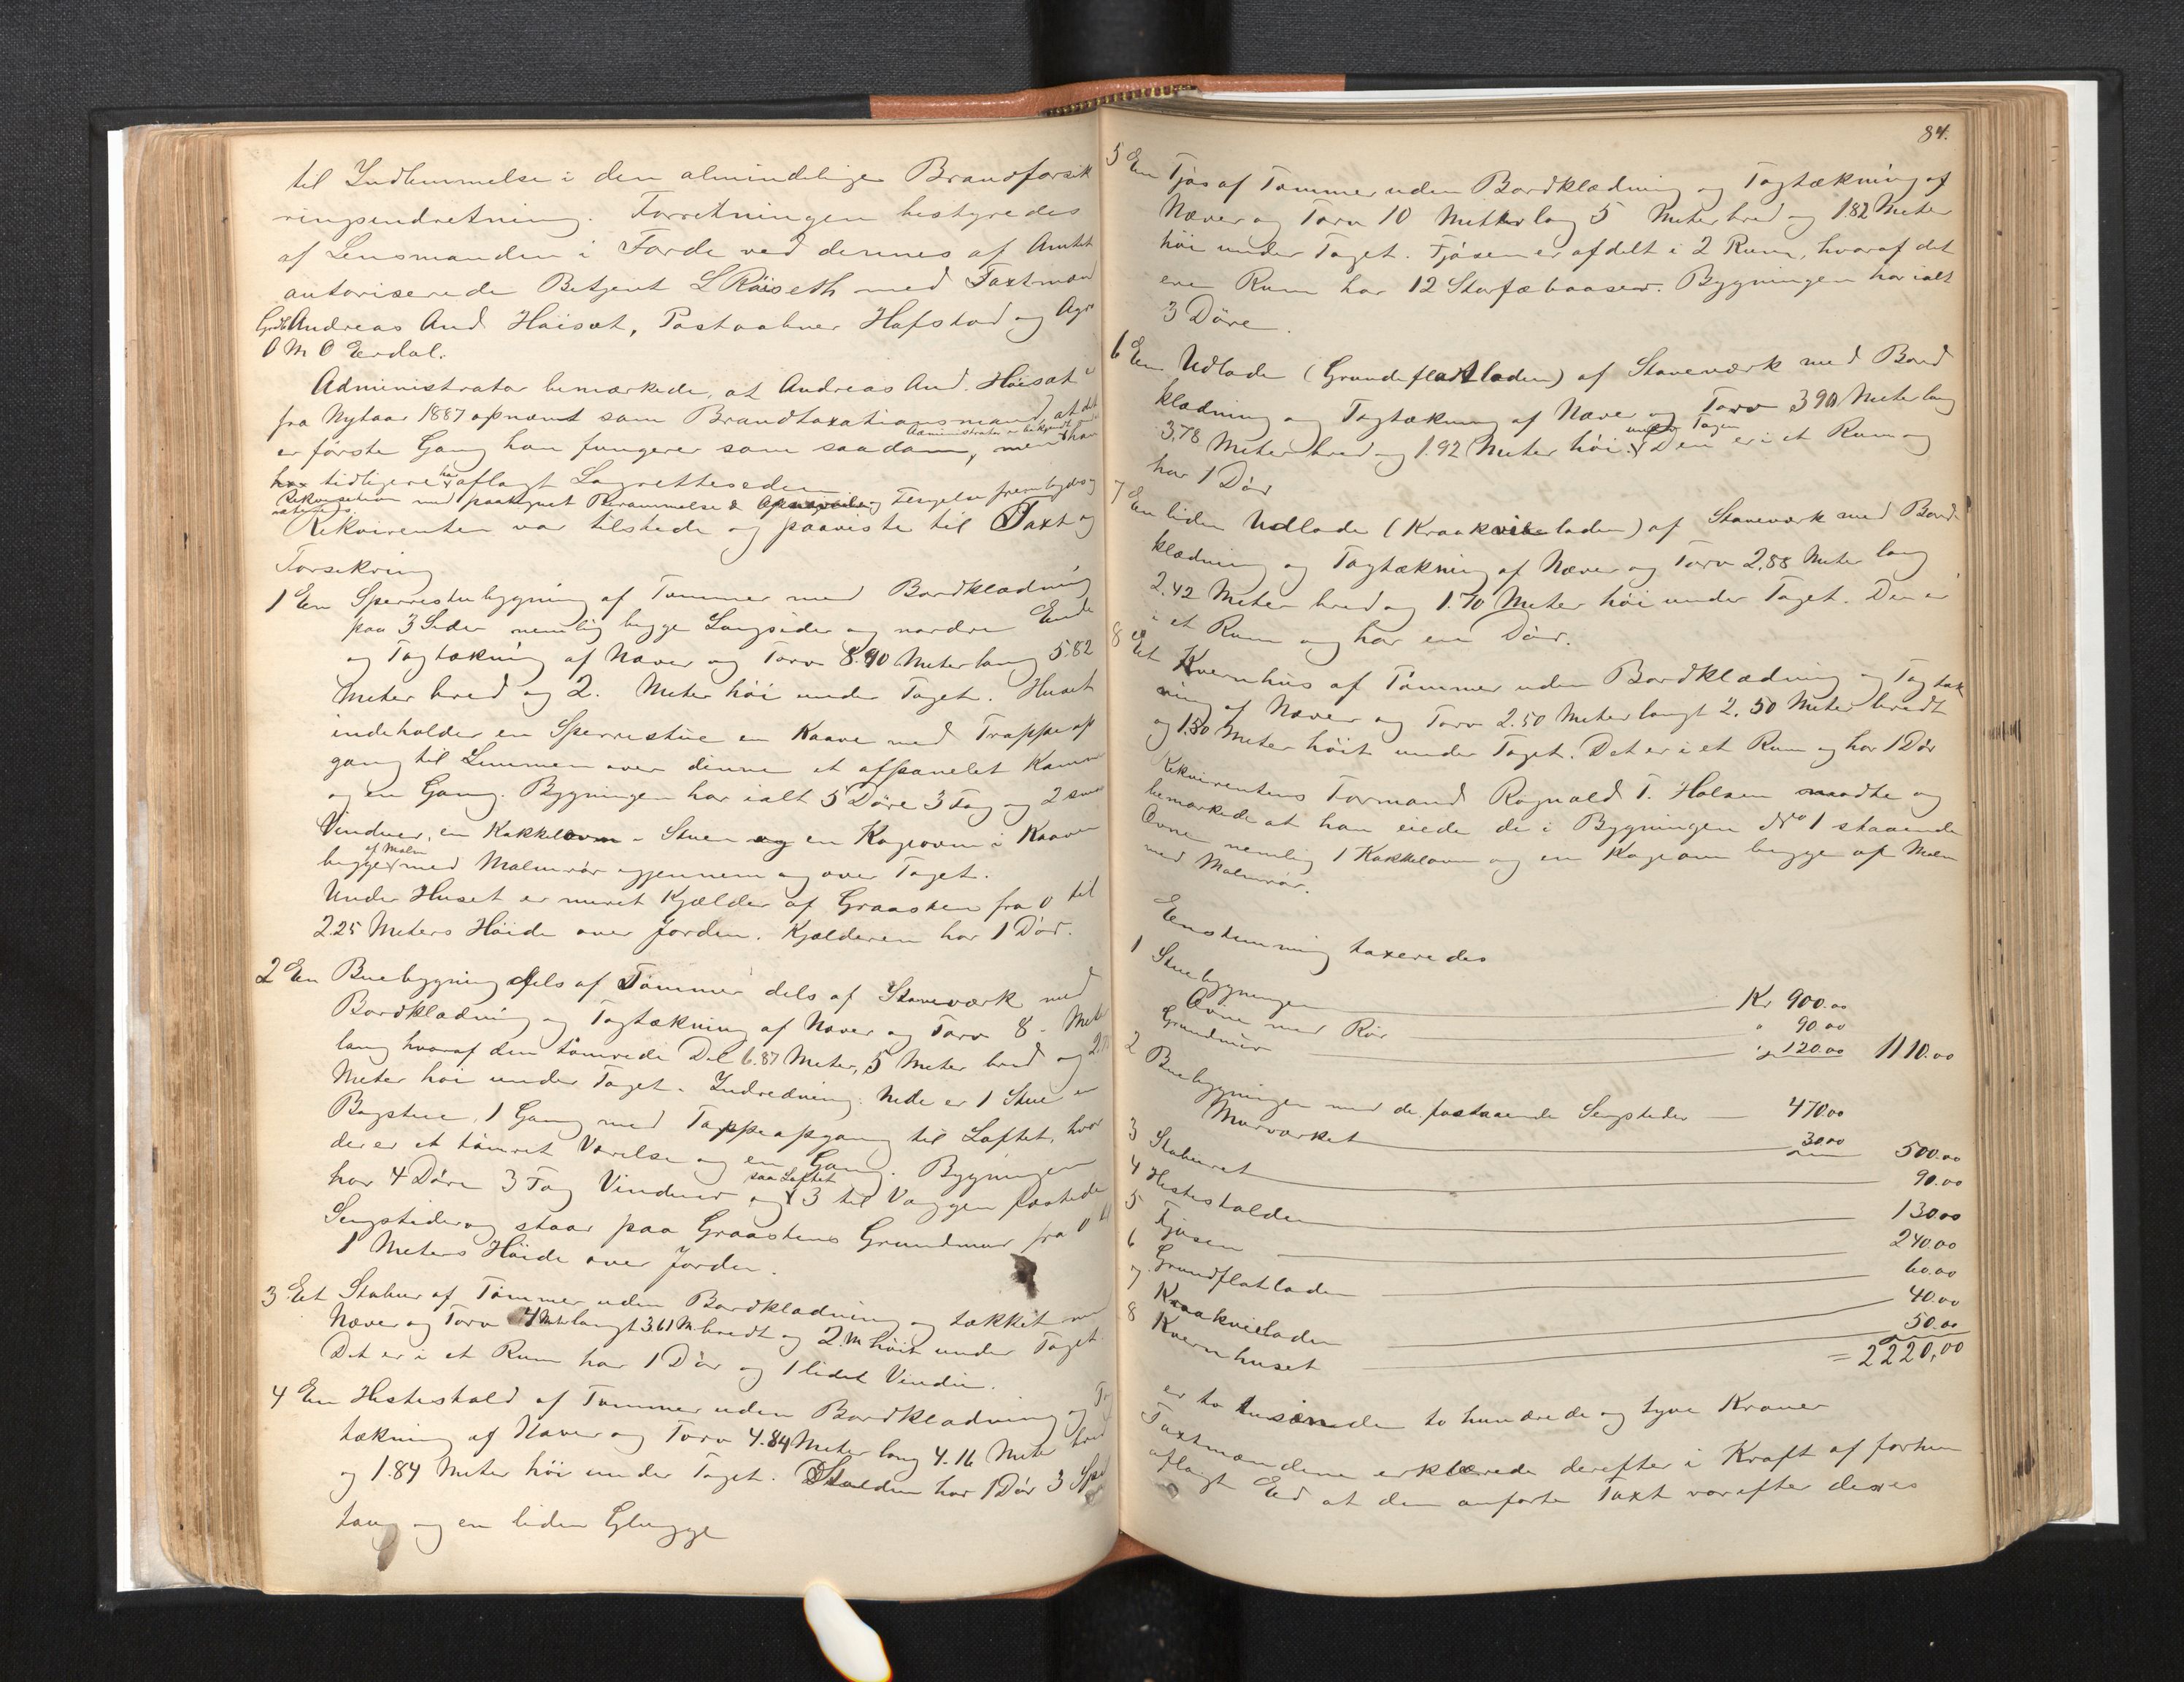 til Indlemmelse i den almindelige Brandforsik
ringsindretning. Forretningen bestyredes
af Lensmanden i Førde ved dennes af Amtet
autoriserede Betjent L Röiseth med Taxtmænd
Grdb Andreas And Höisæt, Postaabner Hafstad og Agro
O M O Eerdal.
Administrator bemærkede, at Andreas And. Höisæt
fra Nytaar 1887 opnævnt som Brandtaxationsmand, at det
er første Gang han fungerer som saadan, men han
Administrator er bekjendt
tidligere har aflagt Lagretteseden
Rekvisition med paategnet Berammelse & Opnævnelse fremlagdes og
Rekvirenten var tilstede og paaviste til Taxt og
Forsikring
1 Een Sperrestuebygning af Tømmer med Bordklædning
paa 3 Sider nemlig begge Langsider og nordre Ende
og Tagtækning af Næver og Torv 8.90 Meter lang 5.82
Meter bred og 2. Meter höi under Taget. Huset
indeholder en Sperrestue en Kaave med Trappeop
gang til Lemmen over denne et afpanelet Kammer
og en Gang. Bygningen har ialt 5 Döre 3 Fag og 2 smaa
Vinduer, en Kakkelovn i Stuen og en Kogeovn i Kaaven
begge af Malm med Malmrör igjennem og over Taget.
Under Huset er muret Kjælder af Graasten fra 0 til
2.25 Meters Höide over Jorden. Kjælderen har 1 Dör.
2 Een Buebygning dels af Tömmer dels af Staveværk med
Bordklædning og Tagtækning af Næver og Torv 8 - Meter
lang hvoraf den tömrede Del 6.87 Meter, 5 Meter bred og
Meter höi under Taget. Indredning: Nede er 1 Stue en
Bagstue, 1 Gang med Tappeopgang til Loftet, hvor
der er et tömret Værelse og en Gang. Bygningen
har 4 Döre 3 Fag Vinduer og paa Loftet 3 til Væggen fæstede
Sengsteder og staar paa Graastens Grundmur fra 0 til
1 Meters Höide over Jorden.
3 Eet Stabur af Tömmer uden Bordklædning og tækket med
Næver og Torv 4 Mtr langt 3.61 M bredt og 2. M höit under Taget
Det er i et Rum har 1 Dör og 1 lidet Vindu.
4 Een Hestestald af Tømmer uden Bordklædning og Tag
tækning af Næver og Torv 4.84 Meter lang 4.16 Meter bred
og 1.84 Meter höi under Taget. Stalden har 1 Dör 3 Spil
taug og en liden Glugge
84.
5 Een Fjös af Tømmer uden Bordklædning og Tagtækning af
Næver og Torv 10 Meter lang 5 Meter bred og 1.82 Meter
höi under Taget. Fjösen er afdelt i 2 Rum, hvoraf det
ene Rum har 12 Storfæbaaser. Bygningen har ialt
3 Döre.
6 Een Udlade (Grundeflatladen) af Staveværk med Bord
klædning og Tagtækning af Næver og Torv 3.90 Meter lang
3.78 Meter bred og 1.92 Meter höi under Taget. Den er i et Rum og
har 1 Dör
7 Een liden Udlade (Kraakvieladen) af Staveværk med Bord
klædning og Tagtækning af Næver og Torv 2.88 Meter lang
2.42 Meter bred og 1.70 Meter höi under Taget. Den er
i et Rum og har en Dör.
8 Et Kvernhus af Tömmer uden Bordklædning og Tagtæk
ning af Næver og Torv 2.50 Meter langt 2.50 Meter bredt
og 1.50 Meter höit under Taget. Det er i et Rum og har 1 Dör
Rekvirentens Formand Ragnald T. Halsen mödte og
bemærkede at han eiede de i Bygningen No 1 staaende
Ovne nemlig 1 Kakkelovn og en Kogeovn begge af Malm
med Malmrör.
Eenstemmig taxeredes
1 Stuebygningen Kr 900.00
Ovne med Rör " 90.00
Grundmur " 120.00 1110.00
2 Buebygningen med de fastaaende Sengsteder 470.00
Murværket 30.00 500.00
3 Staburet 90.00
4 Hestestalden 130.00
5 Fjösen 240.00
6 Grundflatladen 60.00
7 Kraakvieladen 40.00
8 Kvernhuset 50.00
= 2220,00
er to tusinde to hundrede og tyve Kroner
Taxtmændene erklærede derefter i Kraft af forhen
aflagt Eed at den anførte Taxt var efter deres